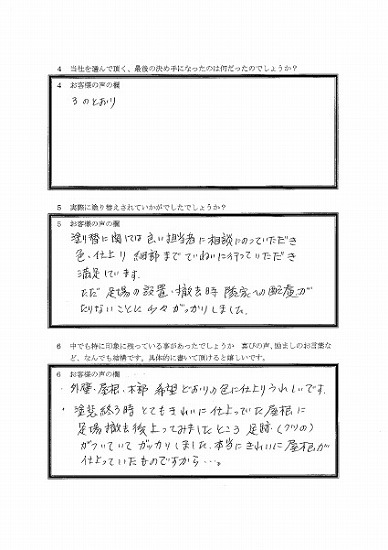 4 当社を選んで頂く、最後の決め手になったのは何だったのでしょうか?
4 お客様の声の欄
3のとおり
5 実際に塗り替えされていかがでしたでしょうか?
5 お客様の声の欄
塗り替に関しては良い担当者に相談にのっていただき
色、仕上り 細部までていねいに行っていただき
満足しています。
ただ足場の設置・撤去時 隣家への配慮が
たりないことに少々がっかりしました。
6 中でも特に印象に残っている事があったでしょうか 喜びの声、励ましのお言葉な
ど、なんでも結構です。具体的に書いて頂けると嬉しいです。
6 お客様の声の欄
・外壁・屋根・木部 希望どおりの色に仕上りうれしいです。
・塗装終る時とてもきれいに仕上っていた屋根に
足場撤去後上ってみましたところ 足跡(クツの)
がついていてガッカリしました。本当にきれいに屋根が
仕上っていたものですから…。